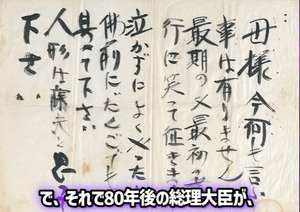 母様今何も言ふ
事は有りません
最期の又最初の
行に笑って征きます
泣かずによくやった
佛前に
具へて下さい
人形は藤夫と思
下さい
で、それで80年後の総理大臣が、